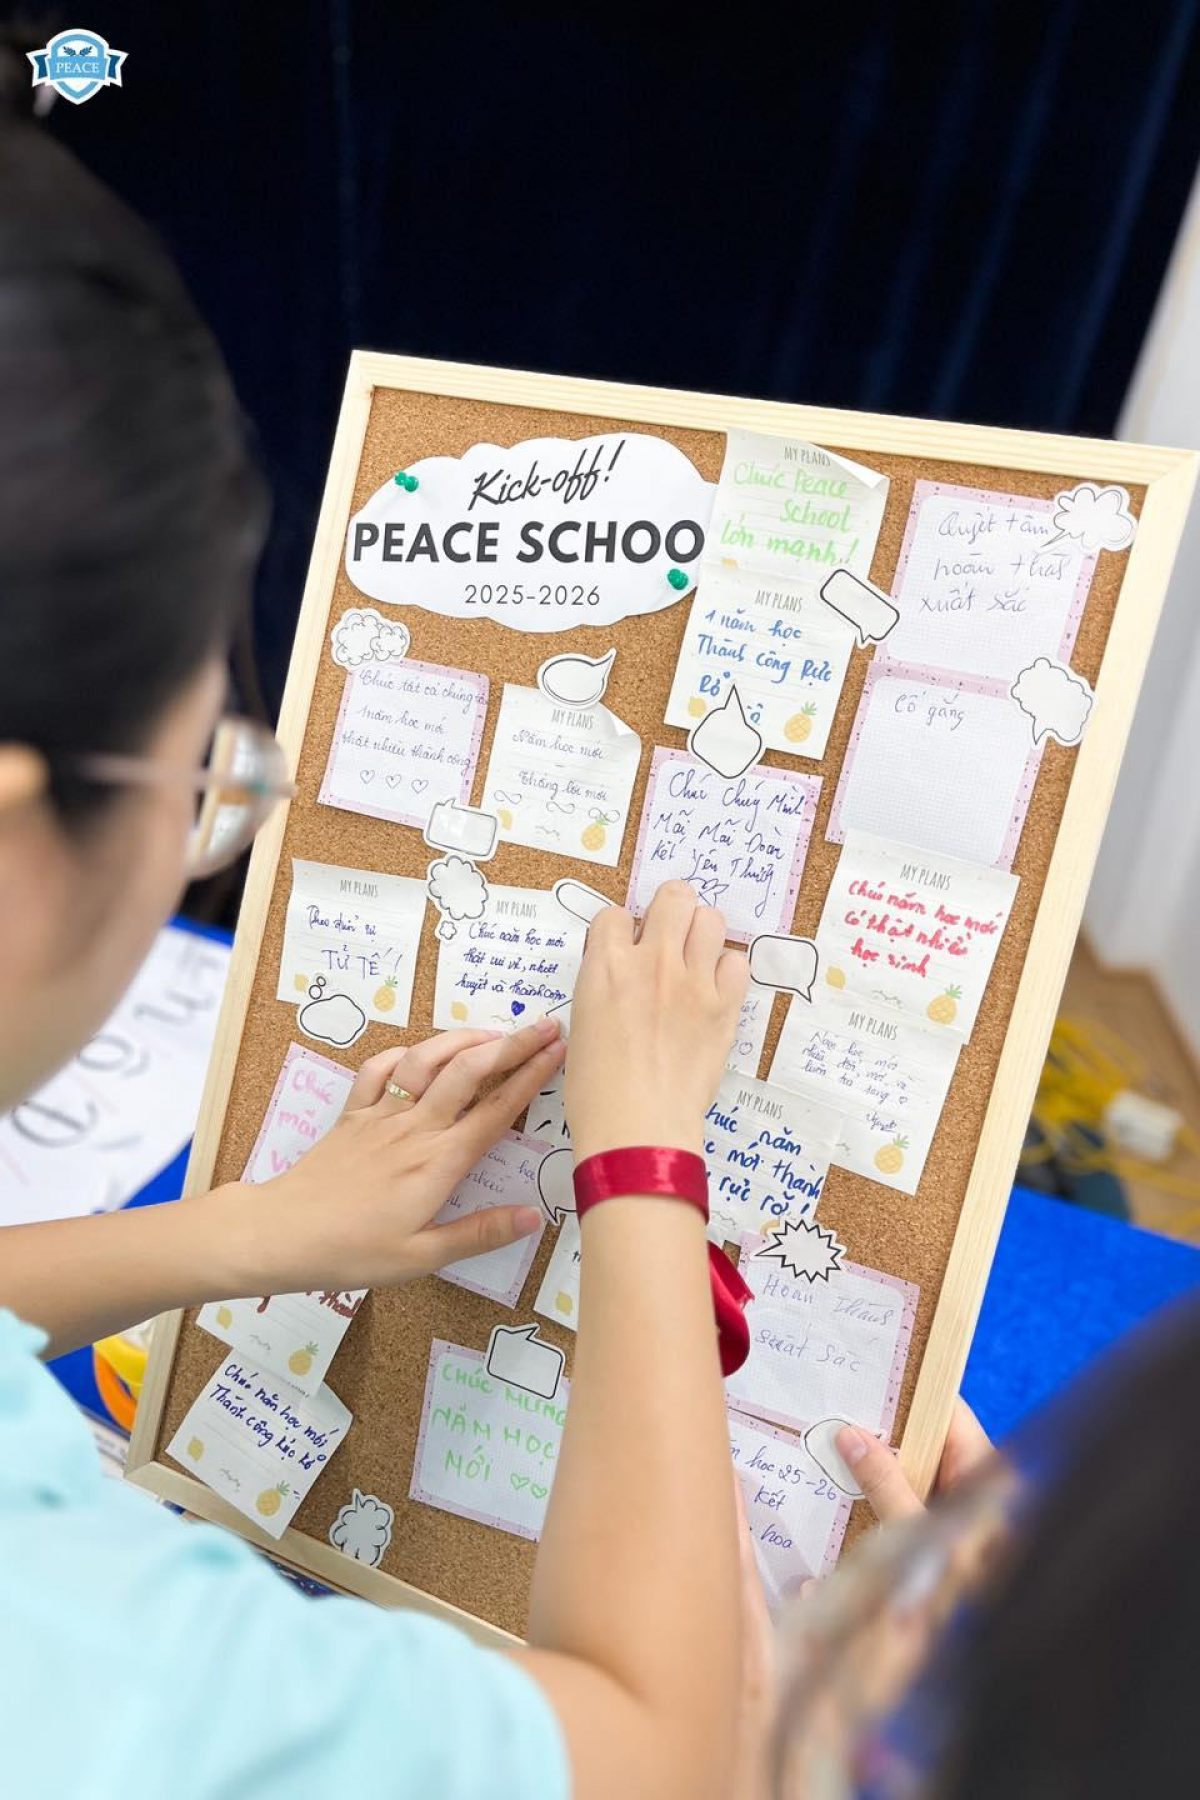 PEACE
Kick-off!
PEACE SCHOO
2025-2026
MY PLANS
Chúc Peace
School
lớn mạnh!
Quyết tâm
hoàn thành
xuất sắc
MY PLANS
1 năm học
Thành công Rực
Rỡ
Cố gắng
Chúc tất cả chúng ta
năm học mới
thật nhiều thành công
MY PLANS
Năm học mới
Thắng lợi mới
Chúc Chúng Mình
Mãi Mãi Đoàn
Kết Yêu Thương
MY PLANS
Chúc năm học mới
có thật nhiều
học sinh
MY PLANS
TỬ TẾ!
MY PLANS
Chúc năm học mới
thật vui vẻ, nhiệt
huyết và thành công
MY PLANS
Năm học mới
MY PLANS
năm
mới thành
rực rỡ!
Chúc
Hoàn thành
xuất sắc
Chúc năm học mới
Thành công rực rỡ
CHÚC MỪNG
NĂM HỌC
MỚI
học 25-26
kết
hoa